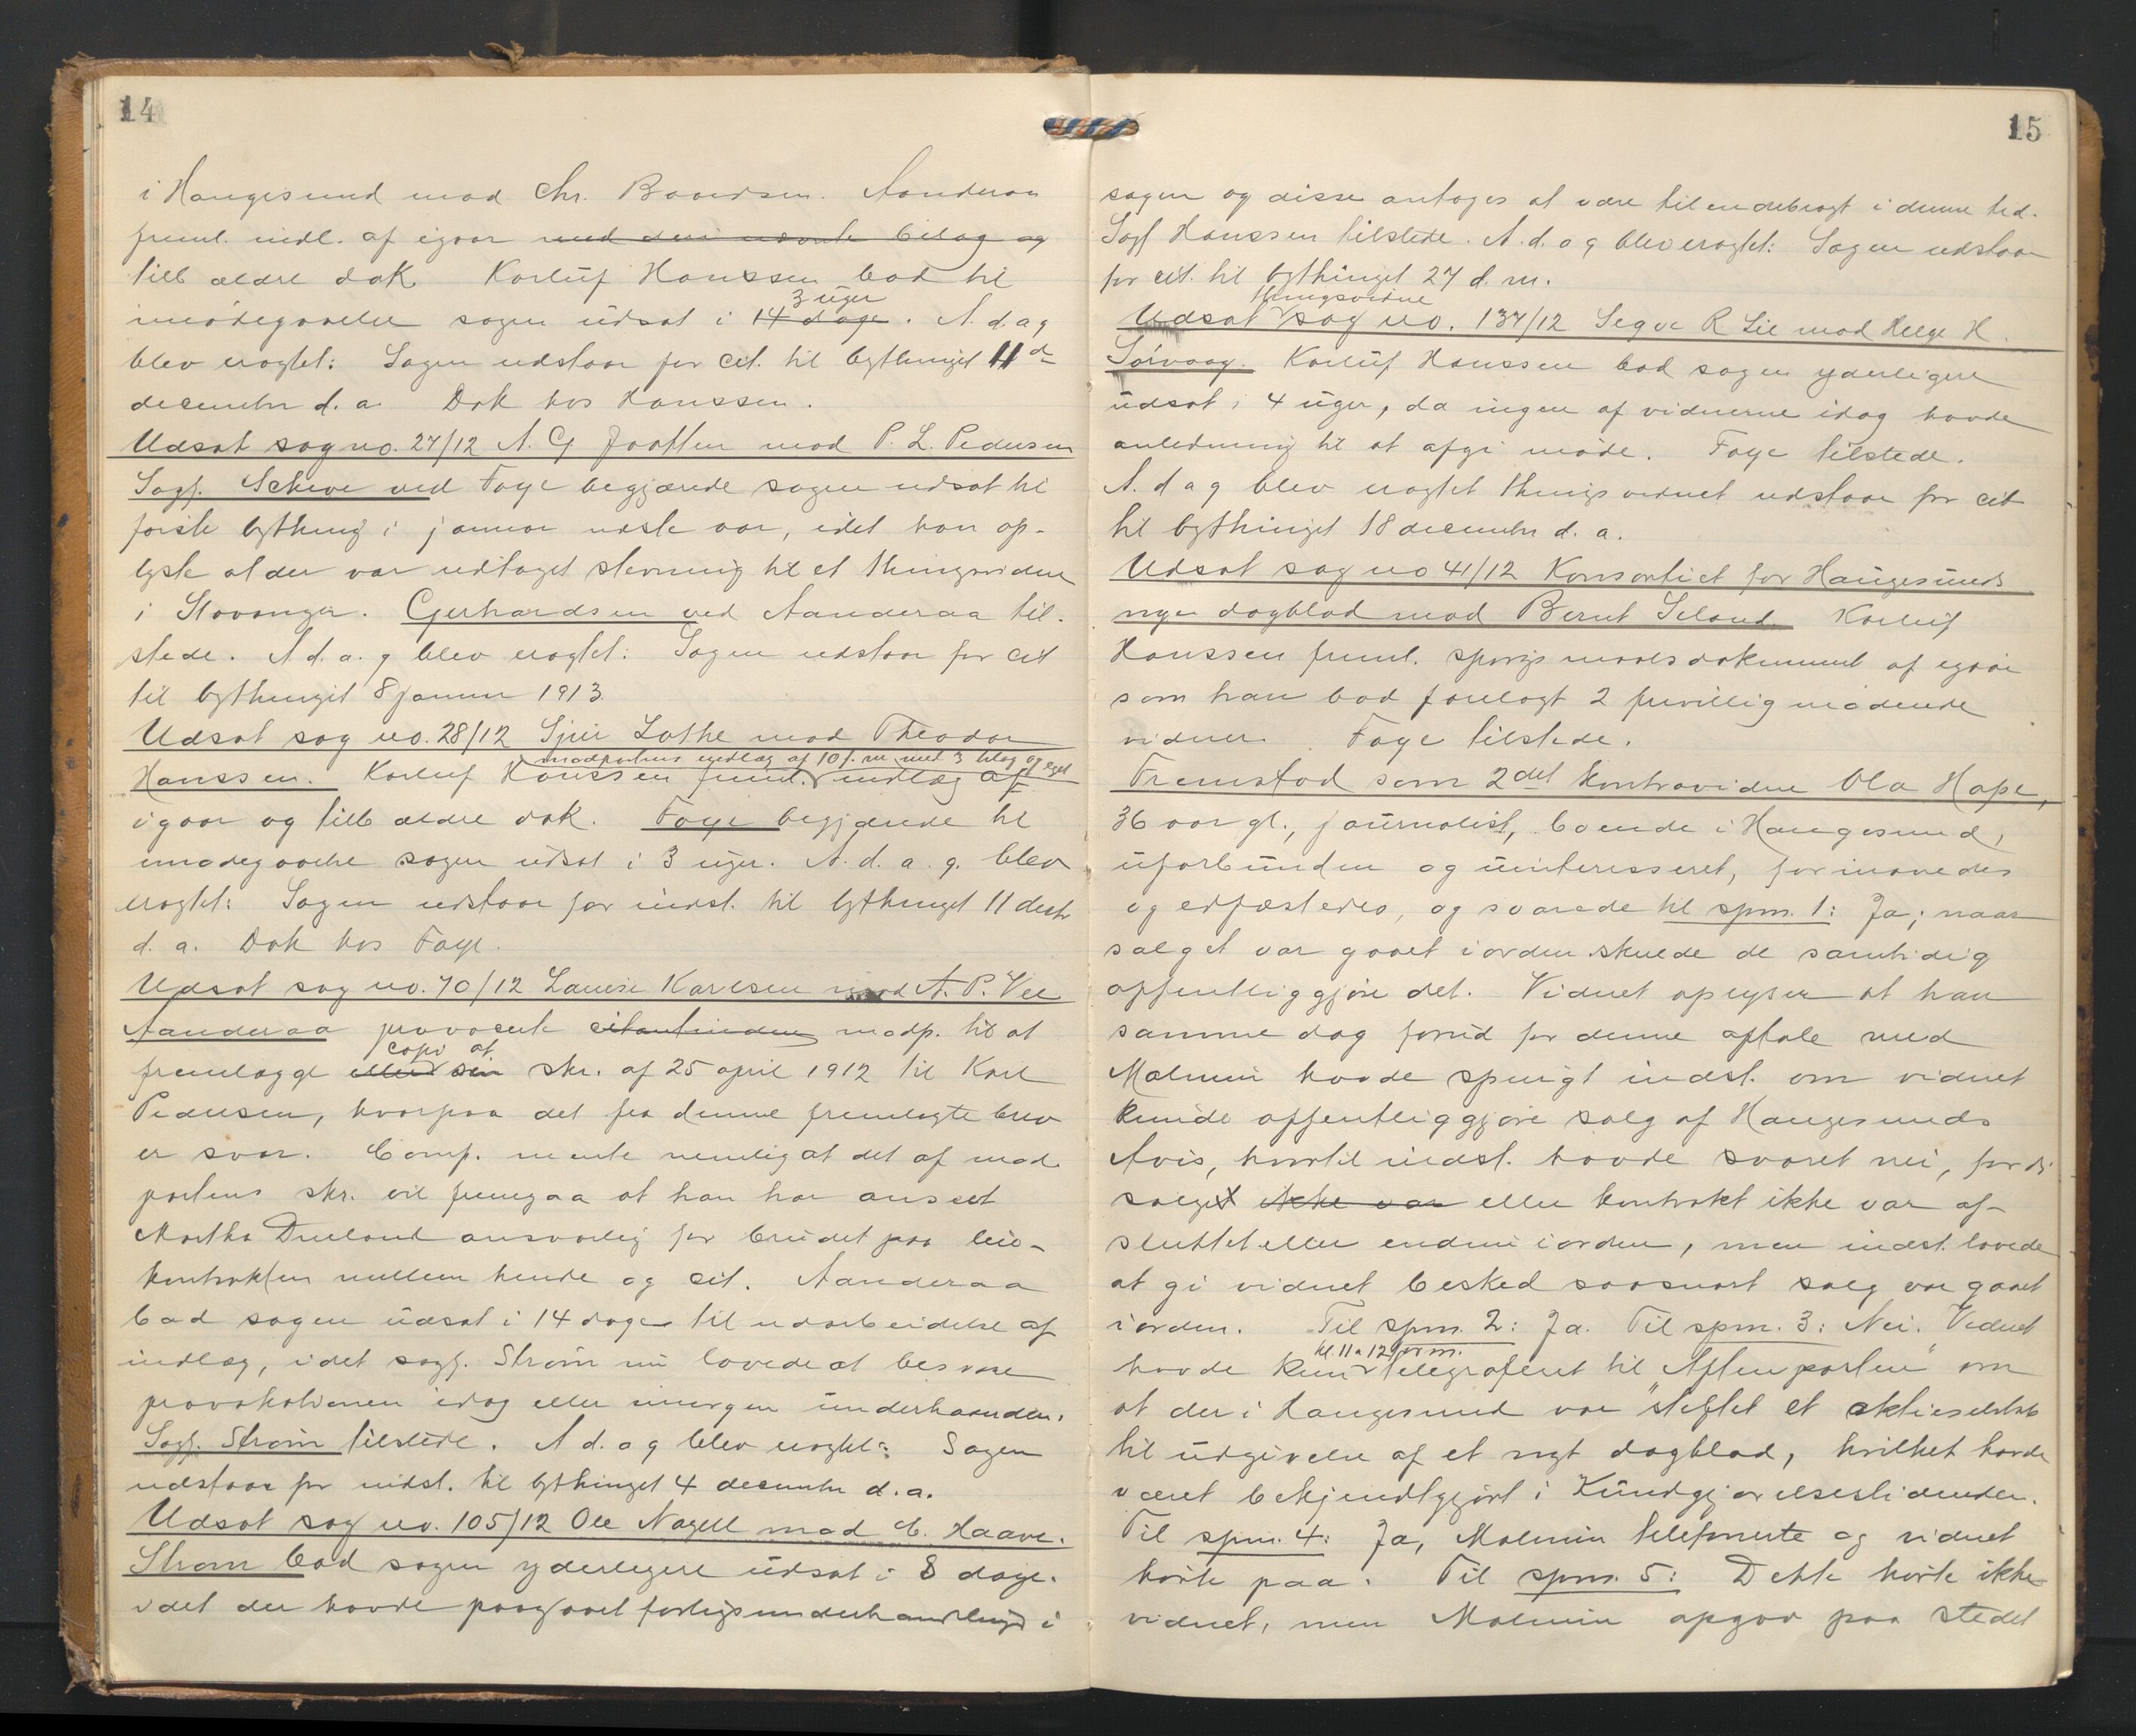 14
i Haugesund mod Chr. Baardsen. Aanderaa
freml. indl. af igaar med deri nævnte bilag og
till. ældre dok. Korluf Hanssen bad til
3 uger
imødegaaelse sagen udsat i 14 dage. A. d. a g
blev eragtet: Sagen udstaar for cit. til bythinget 11 de
december d. a. Dok hos Hanssen.
Udsat sag no. 27/12 A. G. Jaatten mod P. L. Pedersen
Sagf. Scheve ved Faye begjærede sagen udsat til
første bything i januar næste aar, idet han op-
lyste at der var udtaget stevning til et thingsvidne
i Stavanger. Gerhardsen ved Aanderaa til-
stede. A d. a. g blev eragtet: Sagen udstaar for cit
til bythinget 8 januar 1913.
Udsat sag no. 28/12 Sjur Lothe mod Theodor
modpartens indlæg af 10 f. m med 3 bilag og eget
Hanssen. Korluf Hanssen freml. indlæg af
igaar og till. ældre dok. Faye begjærede til
imødegaaelse sagen udsat i 3 uger. A. d. a. g. blev
eragtet: Sagen udstaar for indst. til bythinget 11 decbr
d. a. Dok hos Faye.
Udsat sag no. 70/12 Lauise Karlsen mod A. P. Vee
Aanderaa provocerte citantinden modp. til at
copi af
fremlægge eller sin skr. af 25 april 1912 til Karl
Pedersen, hvorpaa det fra denne fremlagte brev
er svar. Comp. mente nemlig at det af mod-
partens skr. vil fremgaa at han har anseet
Martha Dueland ansvarlig for bruddet paa leie-
kontrakten mellem hende og cit. Aanderaa
bad sagen udsat i 14 dage til udarbeidelse af
indlæg, idet sagf. Strøm nu lovede at besvare
provokationen idag eller imorgen underhaanden.
Sagf. Strøm tilstede. A d. a g blev eragtet: Sagen
udstaar for indst. til bythinget 4 december d. a.
Udsat sag no. 105/12 Ole Nagell mod C. Haave.
Strøm bad sagen yderligere udsat i 8 dage.
idet der havde paagaaet forligsunderhandling i
15
sagen og disse antages at være tilendebragt i denne tid.
Sagf Hanssen tilstede. A. d. a g blev eragtet: Sagen udstaar
for cit. til bythinget 27 d. m.
thingsvidne
Udsat sag no. 134/12 Segve R Lie mod Helge H.
Sørvaag. Korluf Hanssen bad sagen yderligere
udsat i 4 uger, da ingen af vidnerne idag havde
anledning til at afgi møde. Faye tilstede.
A. d a g blev eragtet thingsvidnet udstaar for cit
til bythinget 18 december d. a.
Udsat sag no 41/12 Konsortiet for Haugesunds
nye dagblad mod Bernt Seland Korluf
Hanssen freml. spørgsmaalsdokument af igaar
som han bad forelagt 2 frivillig mødende
vidner. Faye tilstede.
Fremstod som 2det kontravidne Ola Hope,
36 aar gl., journalist, boende i Haugesund,
uforbunden og uinteresseret, formanedes
og edfæstedes, og svarede til spm. 1: Ja; naar
salget var gaaet iorden skulde de samtidig
offentliggjøre det. Vidnet oplyser at han
samme dag forud for denne aftale med
Malmin havde spurgt indst. om vidnet
kunde offentliggjøre salg af Haugesunds
Avis, hvortil indst. havde svaret nei, fordi
salget ikke var eller kontrakt ikke var af-
sluttet eller endnu iorden, men indst. lovede
at gi vidnet besked saasnart salg var gaaet
iorden. Til spm. 2: Ja. Til spm. 3: Nei. Vidnet
kl. 11 a 12 fm.
havde kun telegraferet til "Aftenposten" om
at der i Haugesund var stiftet et aktieselskab
til udgivelse af et nyt dagblad, hvilket havde
været bekjendtgjørt i Kundgjørelsestidenden.
Til spm. 4: Ja, Malmin telefonerte og vidnet
hørte paa. Til spm. 5: Dette hørte ikke
vidnet, men Malmin opgav paa stedet